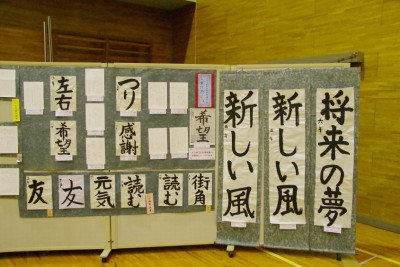 左右
つり
希望
希望
感謝
友
友
元気
読む
読む
街角
新しい風
新しい風
将来の夢